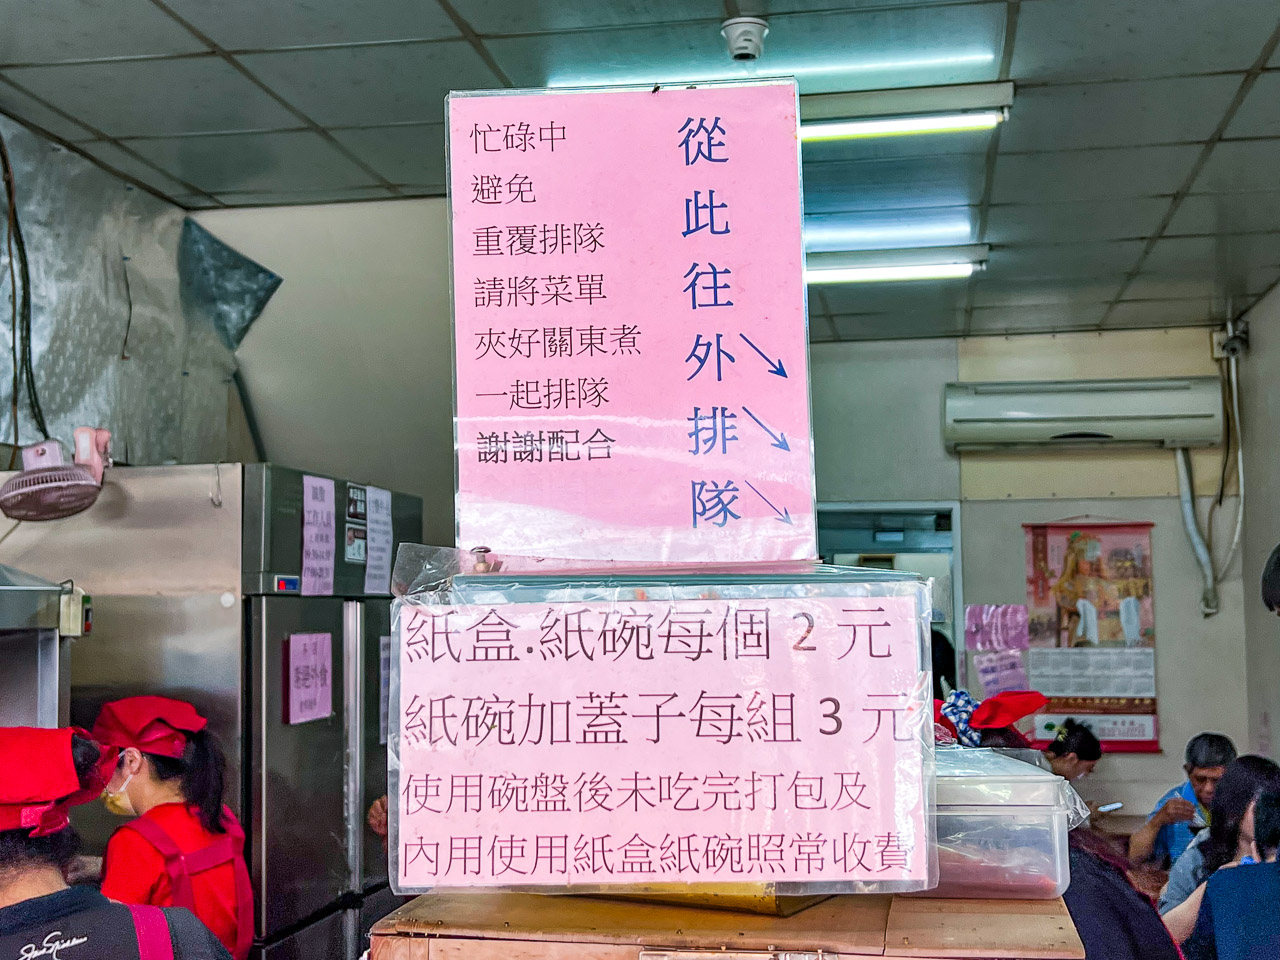 從此往外排隊
忙碌中
避免
重覆排隊
請將菜單
夾好關東煮
一起排隊
謝謝配合
紙盒.紙碗每個 2 元
紙碗加蓋子每組 3 元
使用碗盤後未吃完打包及
內用使用紙盒紙碗照常收費